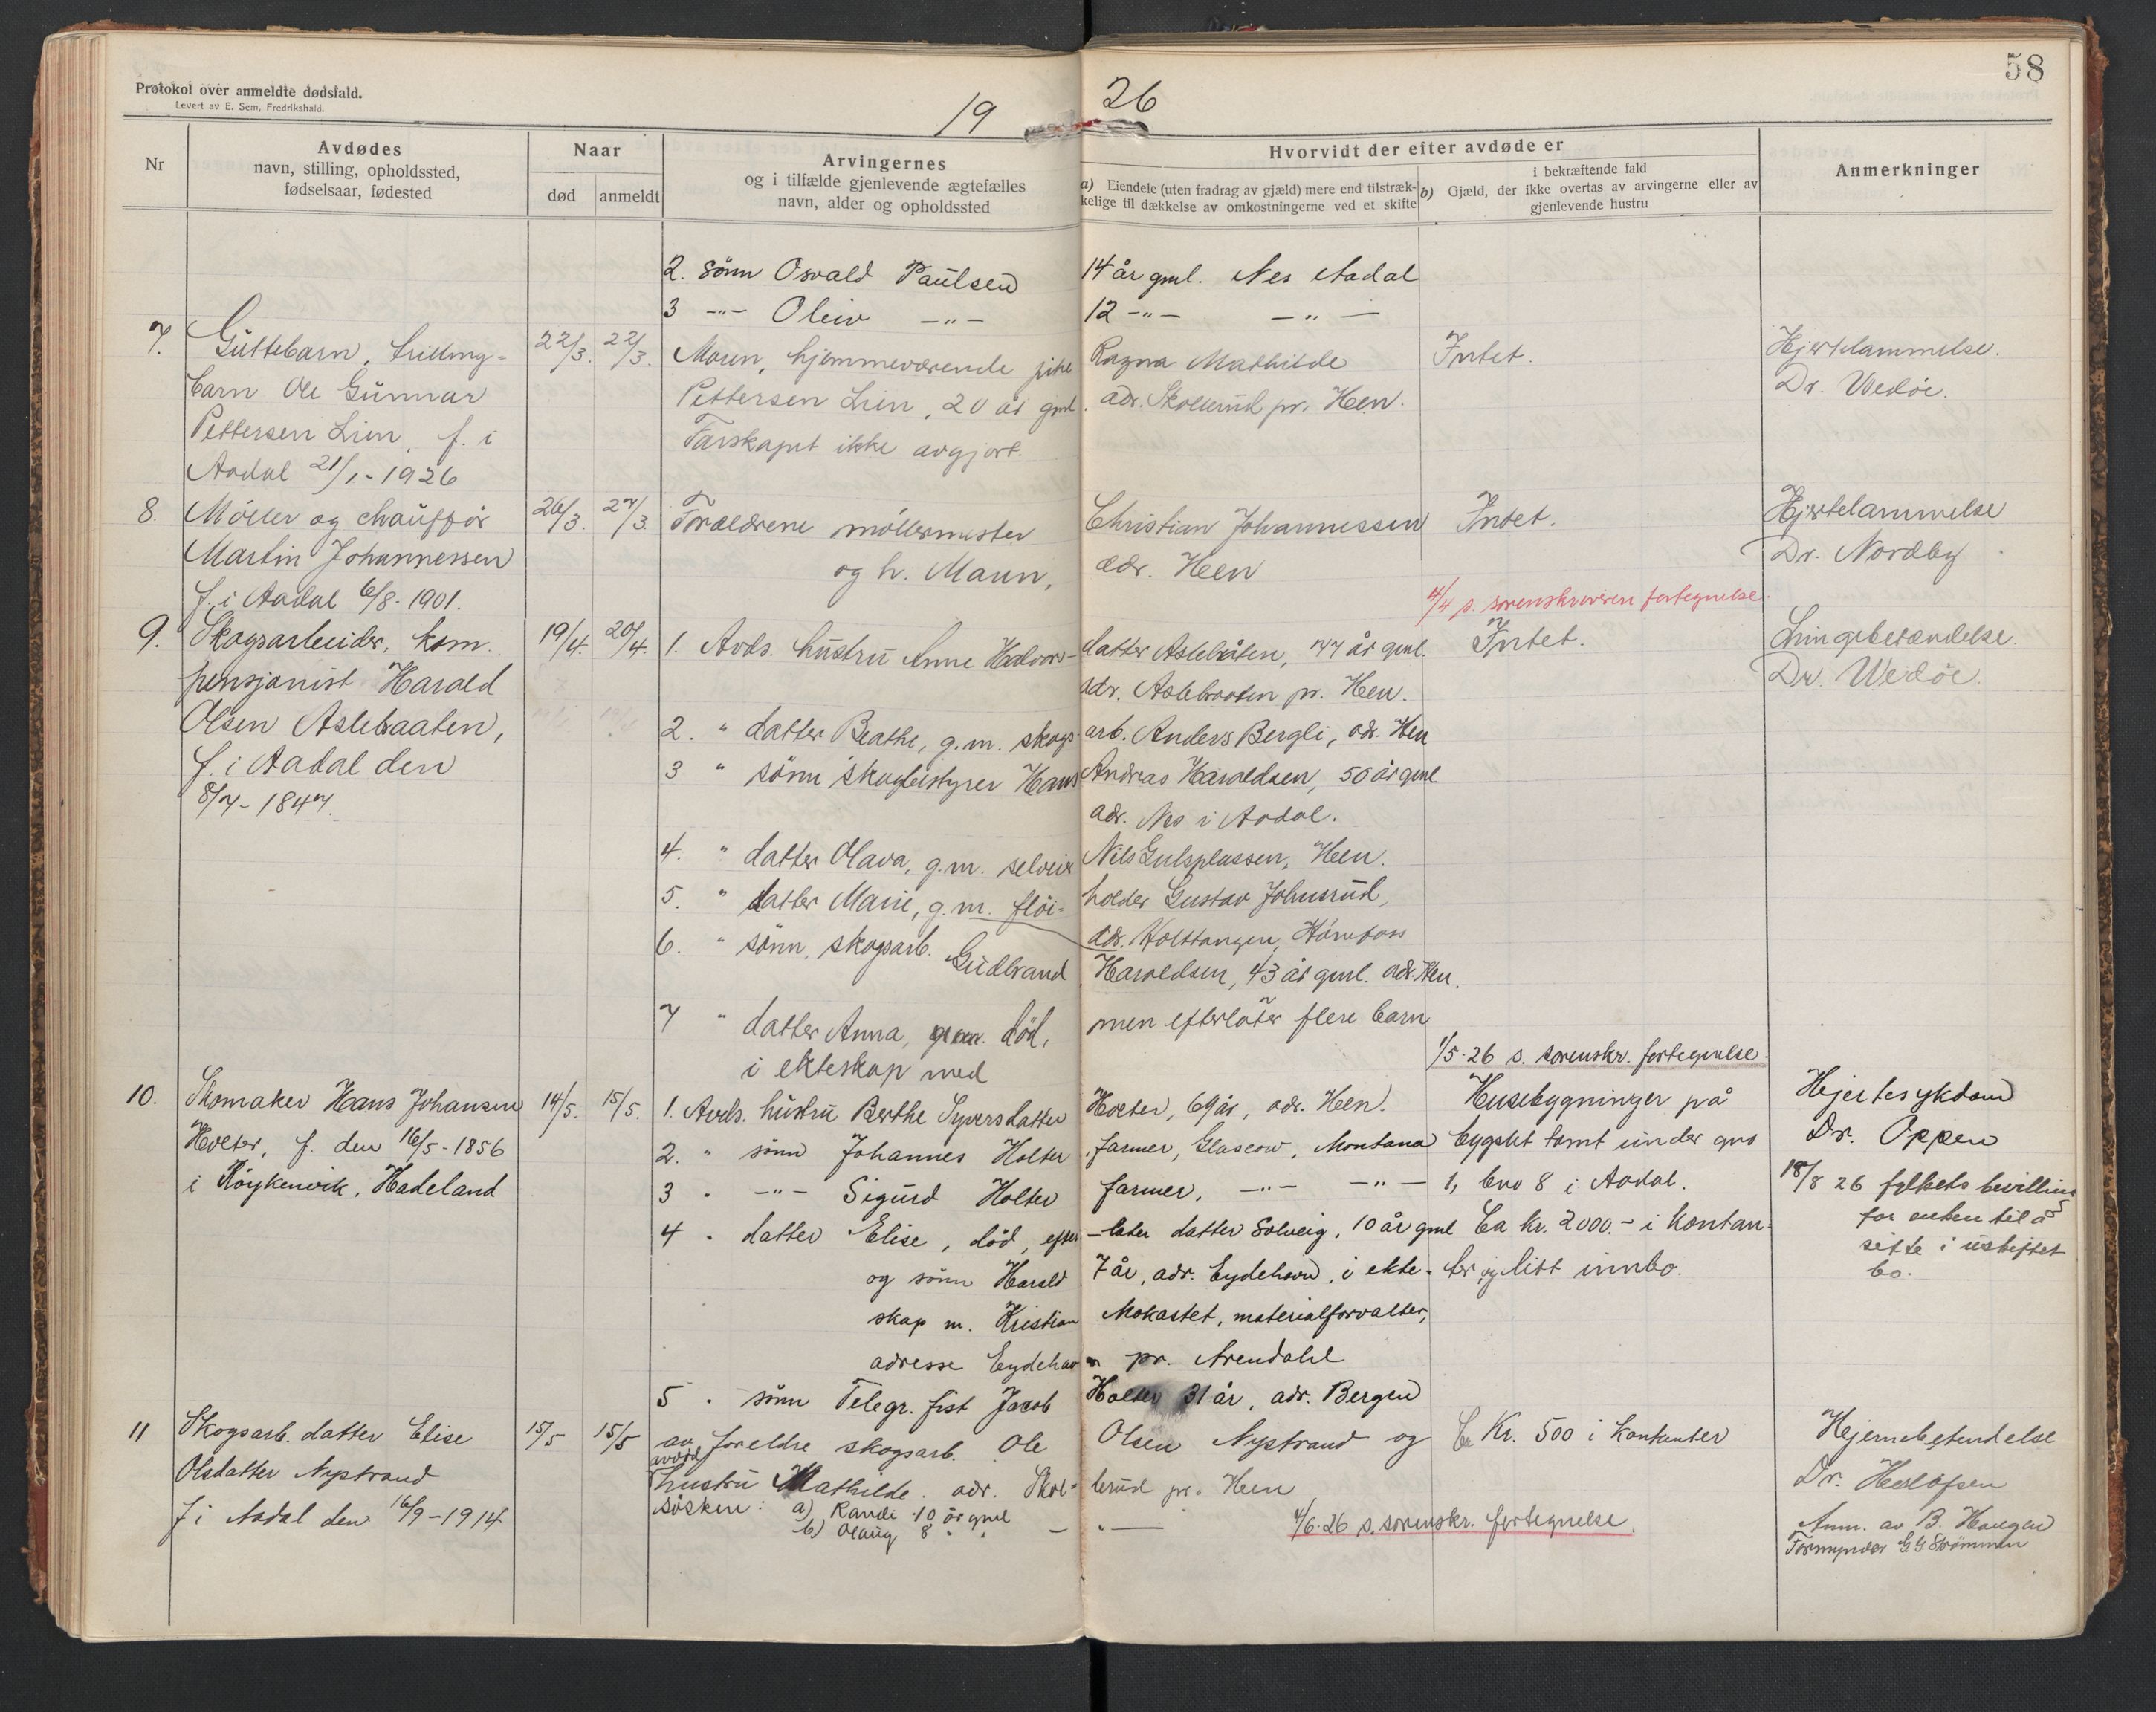 58
Protokol over anmeldte dødsfald.
Levert av E. Sem, Fredrikshald.
19 26
Nr
Avdødes
navn, stilling, opholdssted,
fødselsaar, fødested
Naar
død
anmeldt
Arvingernes
og i tilfælde gjenlevende ægtefælles
navn, alder og opholdssted
Hvorvidt der efter avdøde er
a) Eiendele (uten fradrag av gjæld) mere end tilstræk-
kelige til dækkelse av omkostningerne ved et skifte
i bekræftende fald
b) Gjæld, der ikke overtas av arvingerne eller av
gjenlevende hustru
Anmerkninger
2. sönn Osvald Paulsen 14 år gml. Nes Aadal
3 -"- Oleiv -"- 12 -"- -"-
7.
Guttebarn, trilling-
barn Ole Gunnar
Pettersen Lien, f. i
Aadal 21/1-1926
22/3. 22/3.
Moren, hjemmeværende pike Ragna Mathilde
Pettersen Lien, 20 år gml. adr. Skollerud pr. Hen.
Farskapet ikke avgjort.
Intet.
Hjertelammelse.
Dr. Wedöe.
8.
Möller og chaufför
Martin Johannessen
f. i Aadal 6/8-1901.
26/3. 27/3.
Forældrene möllermester Christian Johannessen
og h. Maren, adr. Hen
Intet.
Hjertelammelse
Dr. Nordby
4/4 s. sorenskriveren fortegnelse.
9.
Skogsarbeider, kom.
pensjonist Harald
Olsen Aslebraaten,
f. i Aadal den
8/7-1847.
19/4. 20/4.
1. Avds. hustru Anne Halvors- datter Aslebråten, 77 år gml.
adr. Aslebraaten pr. Hen.
2. " datter Beathe, g.m. skogs- arb. Anders Bergli, adr. Hen
3 " sönn skogbestyrer Hans Andreas Haraldsen, 50 år gml
adr. Nes i Aadal.
4. " datter Olava, g.m. selveier Nils Gulsplassen, Hen.
5. " datter Marie, g.m. flöi- holder Gustav Johnsrud,
adr. Holttangen, Hönefoss
6. " sönn, skogsarb. Gudbrand Haraldsen, 43 år gml. adr. Hen.
7 " datter Anna, död, men efterlater flere barn
i ekteskap med
Intet.
Lungebetændelse.
Dr. Wedöe.
1/5-26 s. sorenskr. fortegnelse.
10.
Skomaker Hans Johansen
Holter, f. den 16/5-1856
i Röykenvik, Hadeland
14/5. 15/5.
1. Avds. hustru Berthe Syversdatter Holter, 69 år, adr. Hen.
2. " sönn Johannes Holter, farmer, Glascow, Montana
3 " -"- Sigurd Holter farmer, -"- -"-
4 " datter Elise, död, efter- later datter Solveig, 10 år gml
og sönn Harald 7 år, adr. Eydehavn, i ekte-
skap m. Kristian Mokastet, materialforvalter,
adresse Eydehavn pr. Arendahl
5 " sönn Telegr. fist Jacob Holter 31 år, adr. Bergen
Husebygninger på
bygslet tomt under gno
1, bno 8 i Aadal.
Ca kr. 2000.- i kontan-
ter og litt innbo.
Hjertesykdom
Dr. Oppen
18/8 26 fylkets bevilling
for enken til å
sitte i uskiftet
bo.
11
Skogsarb. datter Elise
Olsdatter Nystrand
f i Aadal den 16/9-1914
15/5 15/5
av foreldre skogsarb. Ole Olsen Nystrand og
avdöd hustru Mathilde. adr. Skol- lerud pr. Hen
sösken: a) Randi 10 år gml
b) Olaug 8 " " — " —
Ca Kr. 500 i kontanter
4/6-26 s. sorenskr. fortegnelse.
Hjernebetendelse
Dr.
Anm. av B. Haugen
Formynder G. G. Strömmen